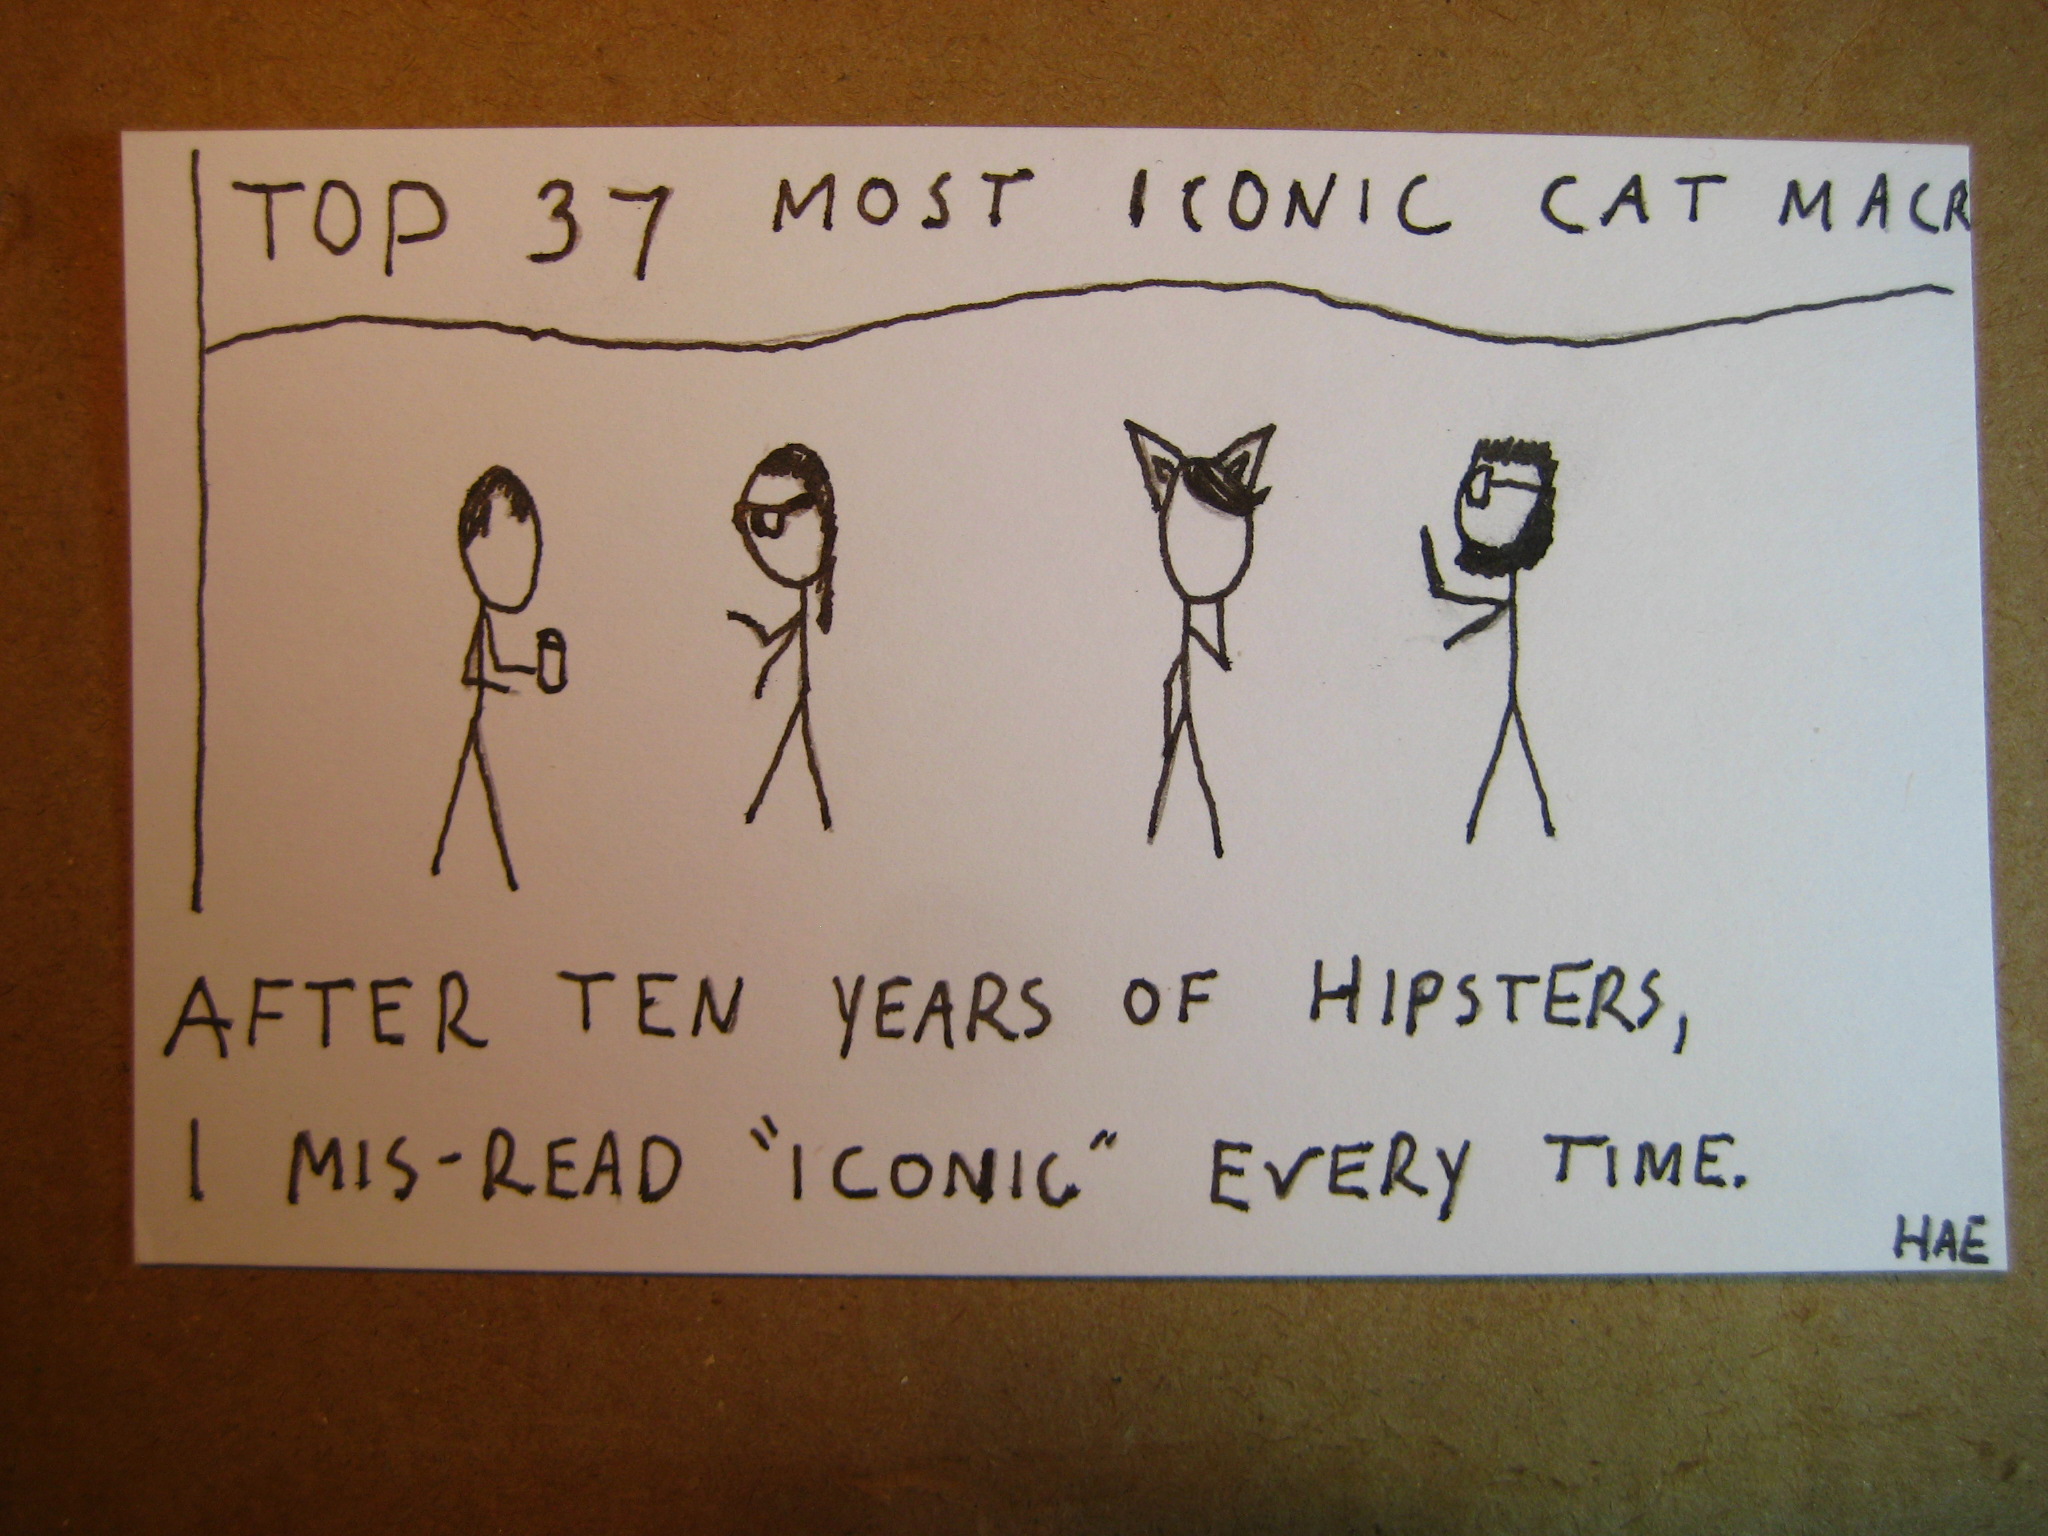 TOP 37 MOST ICONIC CAT MACR
AFTER TEN YEARS OF HIPSTERS,
I MIS-READ "ICONIC" EVERY TIME.
HAE